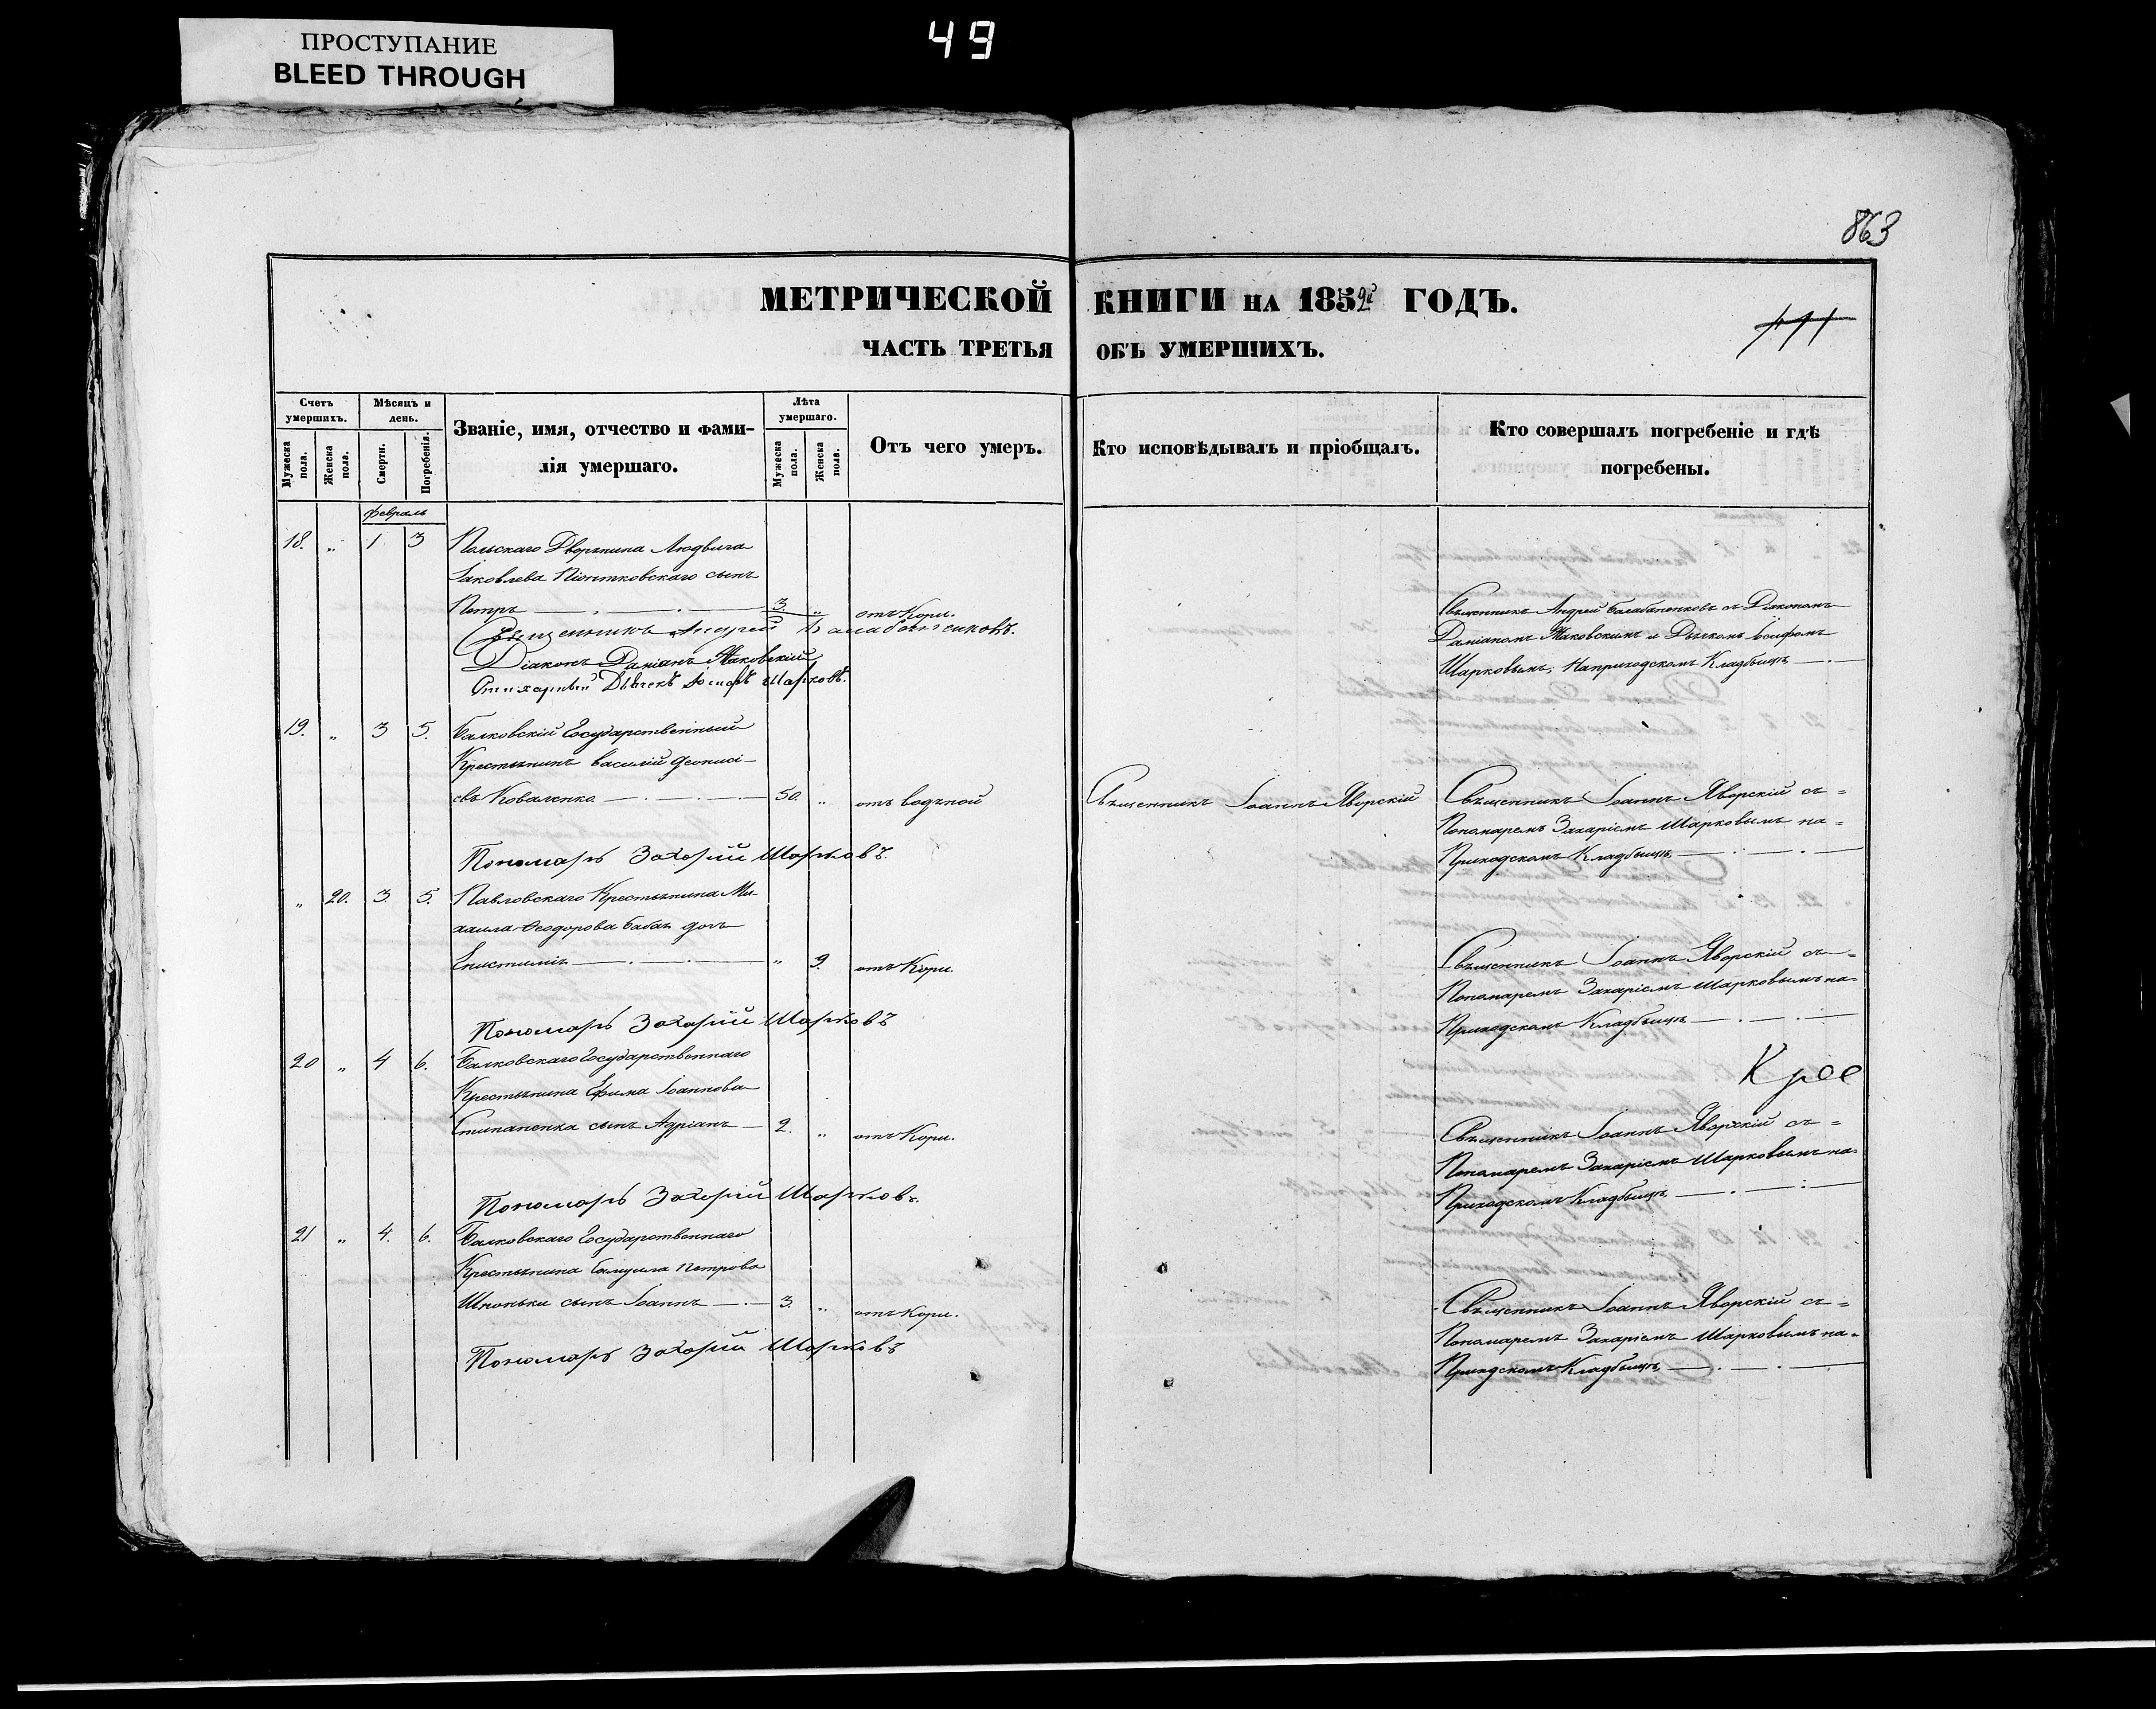 ПРОСТУПАНИЕ
BLEED THROUGH
49
863
МЕТРИЧЕСКОЙ КНИГИ НА 1852й ГОДЪ.
ЧАСТЬ ТРЕТЬЯ ОБЪ УМЕРШИХЪ.
Счетъ умершихъ.
Мужеска пола.
Женска пола.
Мѣсяцъ и день.
Смерти.
Погребенія.
Званіе, имя, отчество и фами-
лія умершаго.
Лѣта умершаго.
Мужеска пола.
Женска пола.
Отъ чего умеръ.
Кто исповѣдывалъ и пріобщалъ.
Кто совершалъ погребеніе и гдѣ
погребены.
Февраль
18. „ 1 3 Польскаго Дворянина Людвига
Іаковлева Піонтковскаго сынъ
Петръ 3 „ отъ Кори.
Священникъ Андрей Балабаненковъ съ Діакономъ
Даміаномъ Маковскимъ и Дьячкомъ Іосифомъ
Шарковымъ, На приходскомъ Кладбищѣ
Священникъ Андрей Балабаненковъ.
Діаконъ Даміанъ Маковскій
Стихарный Дьячекъ Іосифъ Шарковъ.
19. „ 3 5. Балковскій Государственный
Крестьянинъ Василій Деонисі-
евъ Коваленко 50. „ отъ водяной
Священникъ Іоаннъ Яворскій
Священникъ Іоаннъ Яворскій съ =
Пономаремъ Захаріемъ Шарковымъ на =
Приходскомъ Кладбищѣ
Пономарь Захарій Шарковъ.
„ 20. 3. 5. Павловскаго Крестьянина Ми-
хаила Ѳеодорова Бабак дочь
Епистимія „ 9. отъ Кори.
Священникъ Іоаннъ Яворскій съ =
Пономаремъ Захаріемъ Шарковымъ на =
Приходскомъ Кладбищѣ
Пономарь Захарій Шарковъ
20 „ 4 6. Балковскаго Государственнаго
Крестьянина Ефима Іоаннова
Степаненка сынъ Адріанъ 2. „ отъ Кори.
Священникъ Іоаннъ Яворскій съ =
Пономаремъ Захаріемъ Шарковымъ на =
Приходскомъ Кладбищѣ
Пономарь Захарій Шарковъ.
21 „ 4. 6. Балковскаго Государственнаго
Крестьянина Самуила Петрова
Шпоньки сынъ Іоаннъ 3. „ отъ Кори.
Священникъ Іоаннъ Яворскій съ =
Пономаремъ Захаріемъ Шарковымъ на =
Приходскомъ Кладбищѣ
Пономарь Захарій Шарковъ